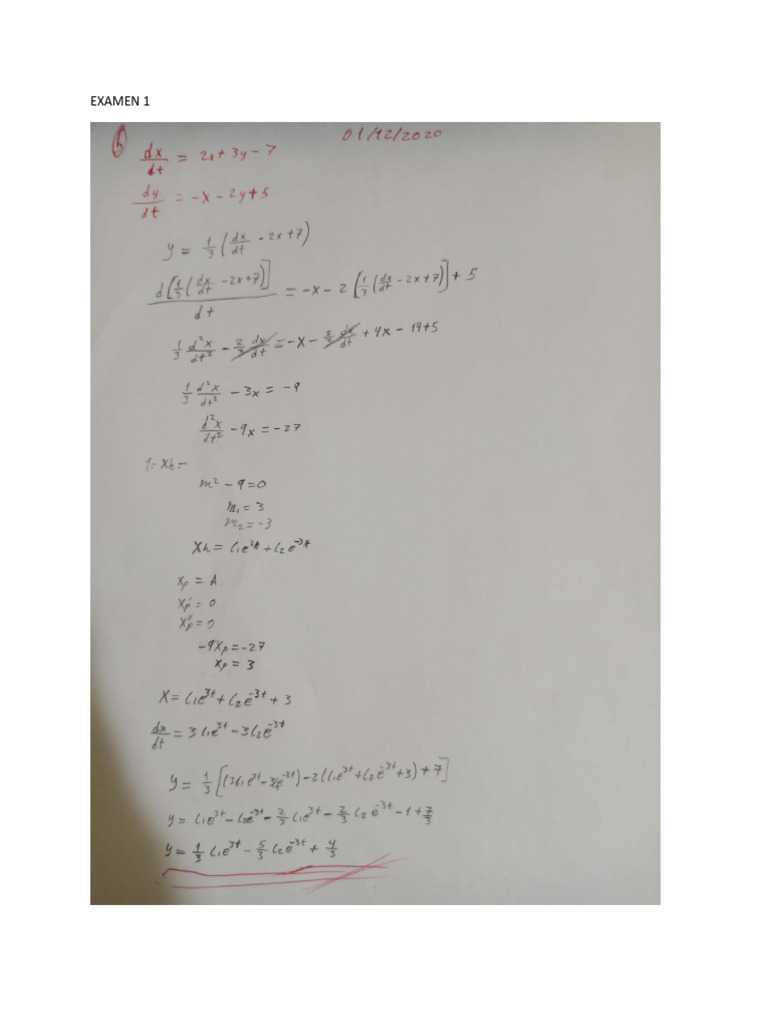 EXAMEN 1
01/12/2020
6) dx/dt = 2x + 3y - 7
dy/dt = -x - 2y + 5
y = 1/3 (dx/dt - 2x + 7)
d[1/3 (dx/dt - 2x + 7)]/dt = -x - 2 [1/3 (dx/dt - 2x + 7)] + 5
1/3 d²x/dt² - 2/3 dx/dt = -x - 2/3 dx/dt + 4x - 14 + 5
1/3 d²x/dt² - 3x = -9
d²x/dt² - 9x = -27
1.- Xh =
m² - 9 = 0
m₁ = 3
m₂ = -3
Xh = C₁e^3t + C₂e^-3t
Xp = A
Xp' = 0
Xp'' = 0
-9Xp = -27
Xp = 3
X = C₁e^3t + C₂e^-3t + 3
dx/dt = 3C₁e^3t - 3C₂e^-3t
y = 1/3 [(3C₁e^3t - 3C₂e^-3t) - 2(C₁e^3t + C₂e^-3t + 3) + 7]
y = C₁e^3t - C₂e^-3t - 2/3 C₁e^3t - 2/3 C₂e^-3t - 1 + 7/3
y = 1/3 C₁e^3t - 5/3 C₂e^-3t + 4/3